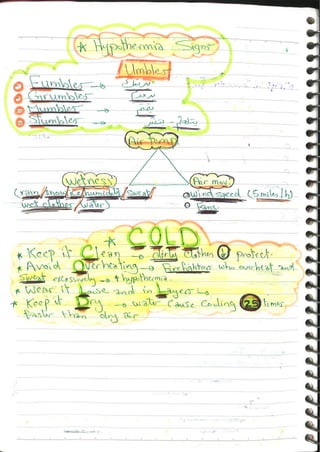 * Hypothermia Signs
Umbles
Fumbles →
Grumbles →
Mumbles →
Stumbles →
Air Temp
Wetness
Air mov.
(rain/snow/ice/humidity/sweat/
wet clothes/water)
Wind speed (5 miles/h)
Fans
* COLD
* Keep it Clean → dirty clothes ↓ protect.
* Avoid Overheating → firefighters who overheat and
sweat excessively → ↑ hypothermia
* Wear it Loose and in Layers →
* Keep it Dry → water Cause Cooling 25 times
faster than dry air